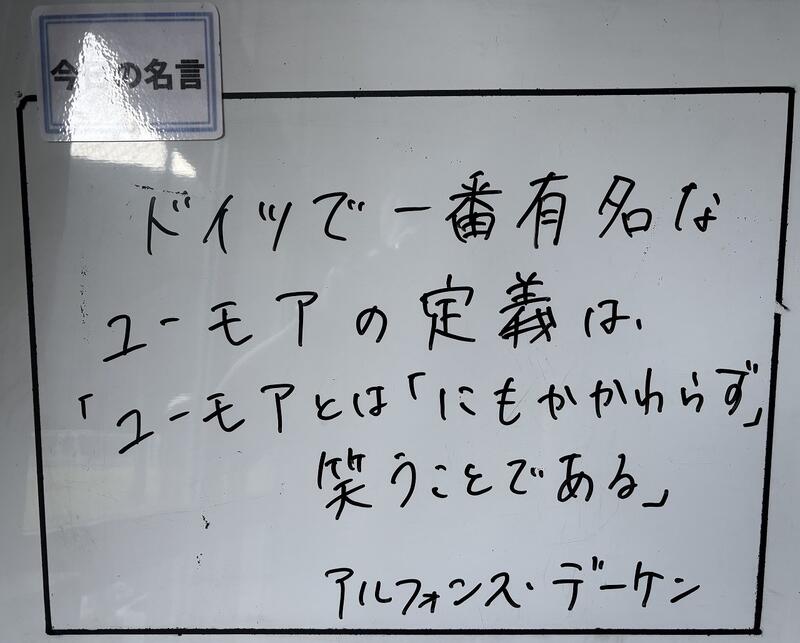 今日の名言
ドイツで一番有名な
ユーモアの定義は、
「ユーモアとは「にもかかわらず」
笑うことである」
アルフォンス・デーケン